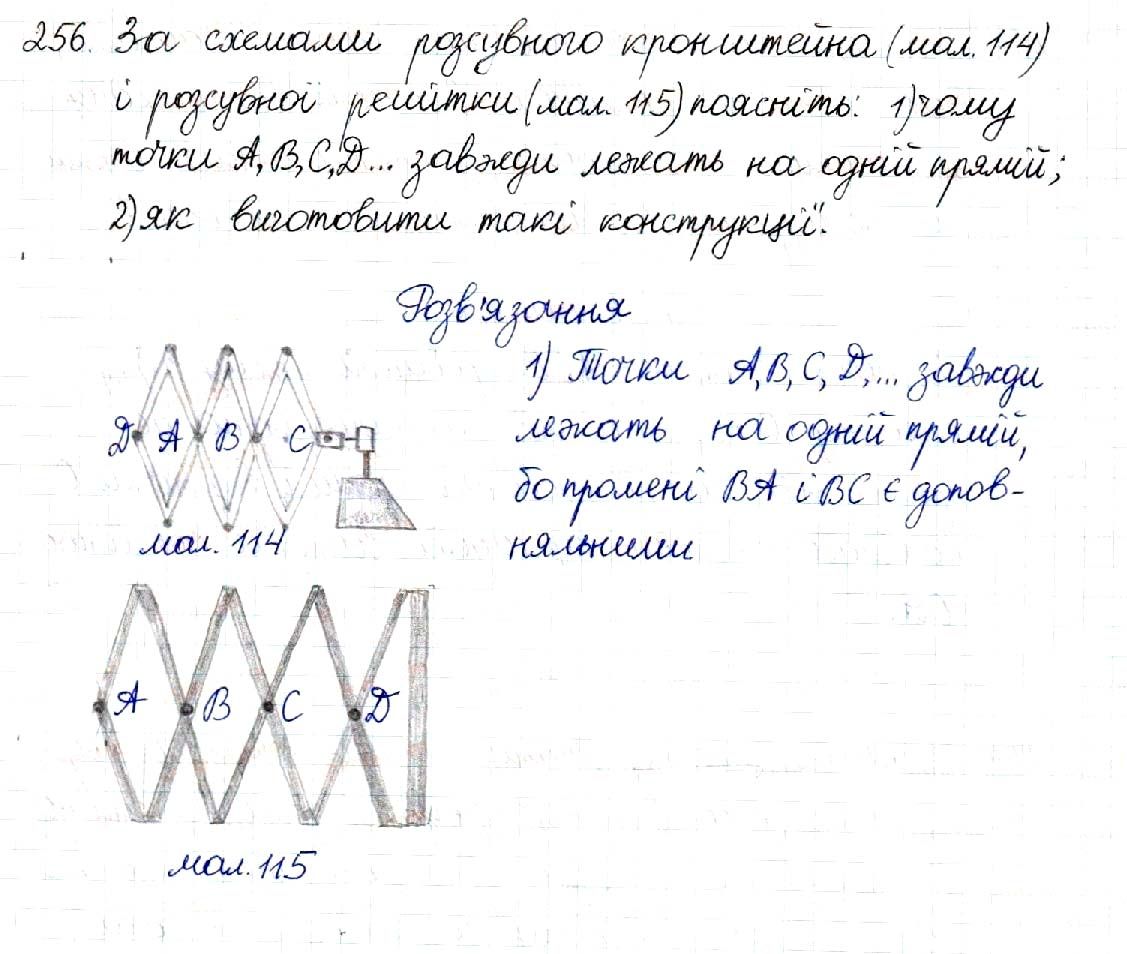 256. За схемами розсувного кронштейна (мал. 114)
і розсувної решітки (мал. 115) поясніть: 1) чому
точки A, B, C, D... завжди лежать на одній прямій;
2) як виготовити такі конструкції.
Розв'язання
1) Точки A, B, C, D,... завжди
лежать на одній прямій,
бо промені BA і BC є допов-
няльними
D A B C
мал. 114
A B C D
мал. 115